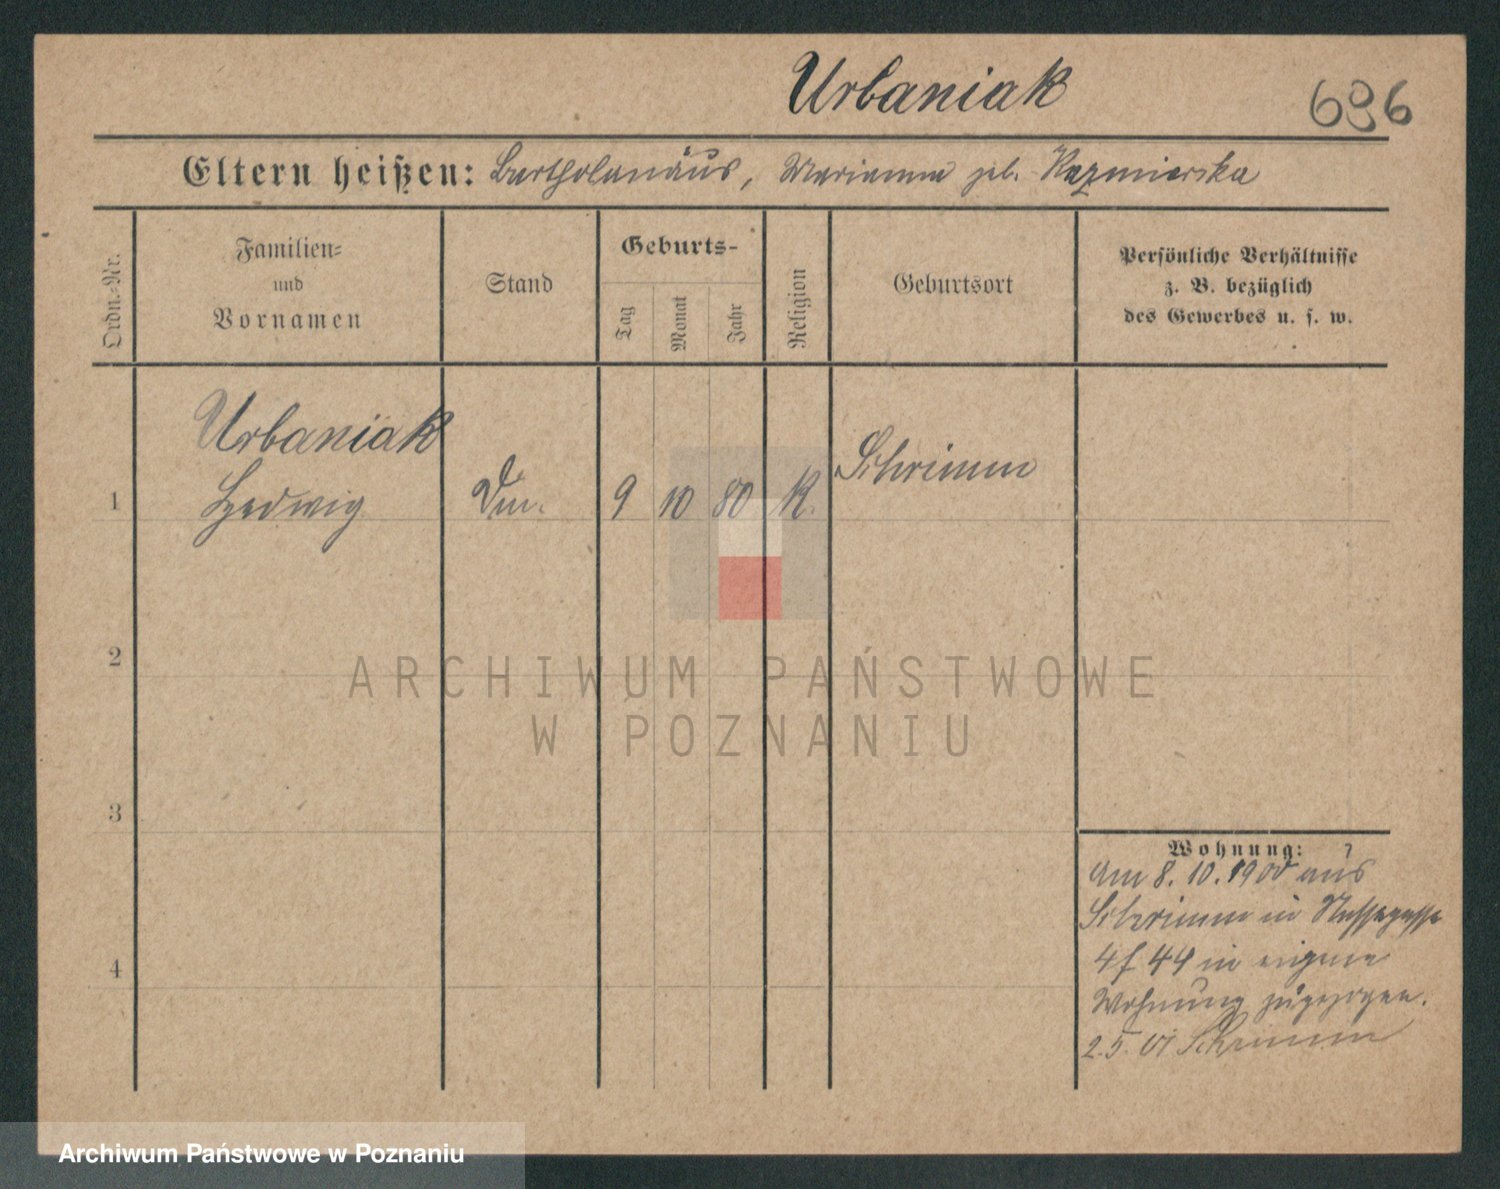 Urbaniak
696
Eltern heißen: Bartholomäus, Marianna geb. Kazmierska
Ordn.-Nr.
Familien-
und
Vornamen
Stand
Geburts-
Tag
Monat
Jahr
Religion
Geburtsort
Persönliche Verhältnisse
z. B. bezüglich
des Gewerbes u. s. w.
Urbaniak
1 Hedwig 9 10 80 K. Schrimm
2
3
4
Wohnung:
Am 8.10.1900 aus
Schrimm in
44 in eigene
Wohnung zugezogen.
2.5.01 Schrimm
ARCHIWUM PAŃSTWOWE
W POZNANIU
Archiwum Państwowe w Poznaniu